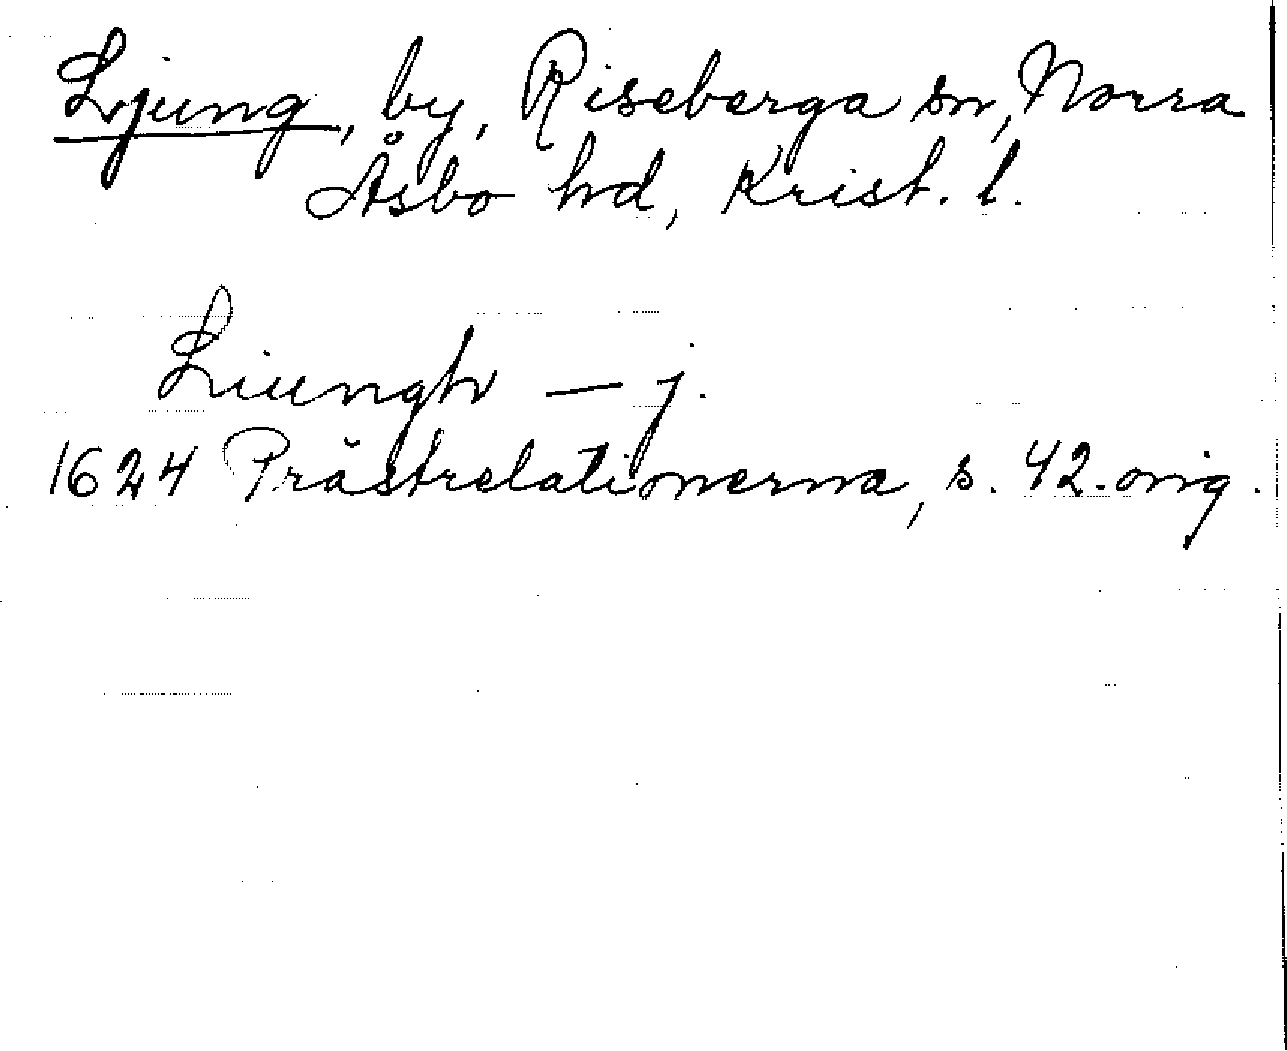 Ljung, by, Riseberga sn, Norra
Åsbo hd, Krist. l.
Liungh — j.
1624 Prästrelationerna, s. 42. orig.